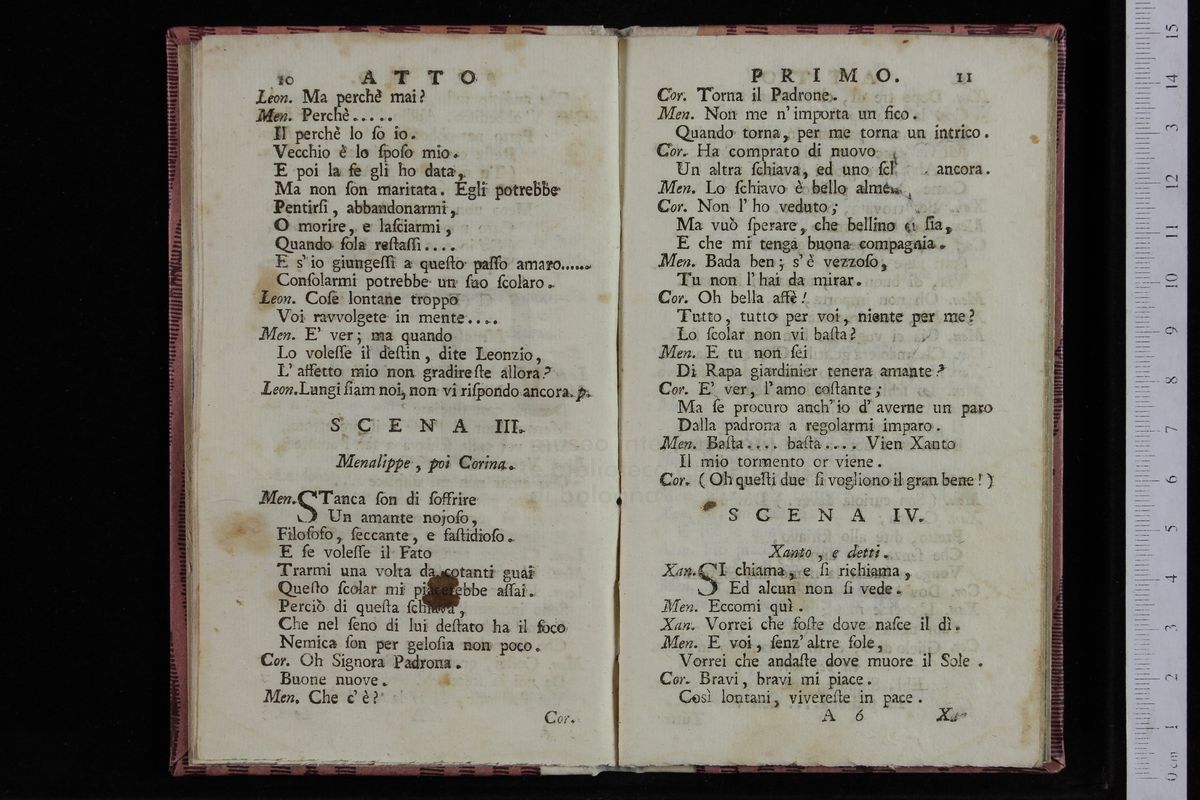 10 ATTO
Leon. Ma perchè mai?
Men. Perchè.....
Il perchè lo ſo io.
Vecchio è lo ſpoſo mio.
E poi la fe gli ho data,
Ma non ſon maritata. Egli potrebbe
Pentirſi, abbandonarmi,
O morire, e laſciarmi,
Quando ſola reſtaſſi....
E s'io giungeſſi a queſto paſſo amaro......
Conſolarmi potrebbe un ſuo ſcolaro.
Leon. Coſe lontane troppo
Voi ravvolgete in mente....
Men. E' ver; ma quando
Lo voleſſe il deſtin, dite Leonzio,
L'affetto mio non gradireſte allora?
Leon. Lungi ſiam noi, non vi riſpondo ancora. p.
SCENA III.
Menalippe, poi Corina.
Men. STanca ſon di ſoffrire
Un amante nojoſo,
Filoſofo, ſeccante, e faſtidioſo.
E ſe voleſſe il Fato
Trarmi una volta da cotanti guai
Queſto ſcolar mi piacerebbe aſſai.
Perciò di queſta ſchiava,
Che nel ſeno di lui deſtato ha il foco
Nemica ſon per geloſia non poco.
Cor. Oh Signora Padrona.
Buone nuove.
Men. Che c'è?
Cor.
PRIMO. 11
Cor. Torna il Padrone.
Men. Non me n'importa un fico.
Quando torna, per me torna un intrico.
Cor. Ha comprato di nuovo
Un altra ſchiava, ed uno ancora.
Men. Lo ſchiavo è bello
Cor. Non l'ho veduto;
Ma vuò ſperare, che bellino ſia,
E che mi tenga buona compagnia.
Men. Bada ben; s'è vezzoſo,
Tu non l'hai da mirar.
Cor. Oh bella affè!
Tutto, tutto per voi, niente per me?
Lo ſcolar non vi baſta?
Men. E tu non ſei
Di Rapa giardinier tenera amante?
Cor. E' ver, l'amo coſtante;
Ma ſe procuro anch'io d'averne un paro
Dalla padrona a regolarmi imparo.
Men. Baſta.... baſta.... Vien Xanto
Il mio tormento or viene.
Cor. (Oh queſti due ſi vogliono il gran bene!)
SCENA IV.
Xanto, e detti.
Xan. SI chiama, e ſi richiama,
Ed alcun non ſi vede.
Men. Eccomi quì.
Xan. Vorrei che foſte dove naſce il dì.
Men. E voi, ſenz'altre fole,
Vorrei che andaſte dove muore il Sole.
Cor. Bravi, bravi mi piace.
Così lontani, vivereſte in pace.
A 6
0 cm 1 2 3 4 5 6 7 8 9 10 11 12 13 14 15